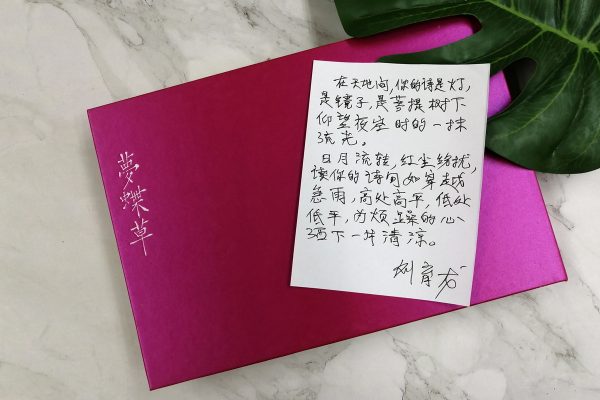 夢蝶草
在天地间,你的诗是灯,
是镜子,是菩提树下
仰望夜空时的一抹
流光。
日月流转,红尘纷扰,
读你的诗句如穿越
急雨,高处高平,低处
低平,为烦躁的心
洒下一片清凉。
刘育龙